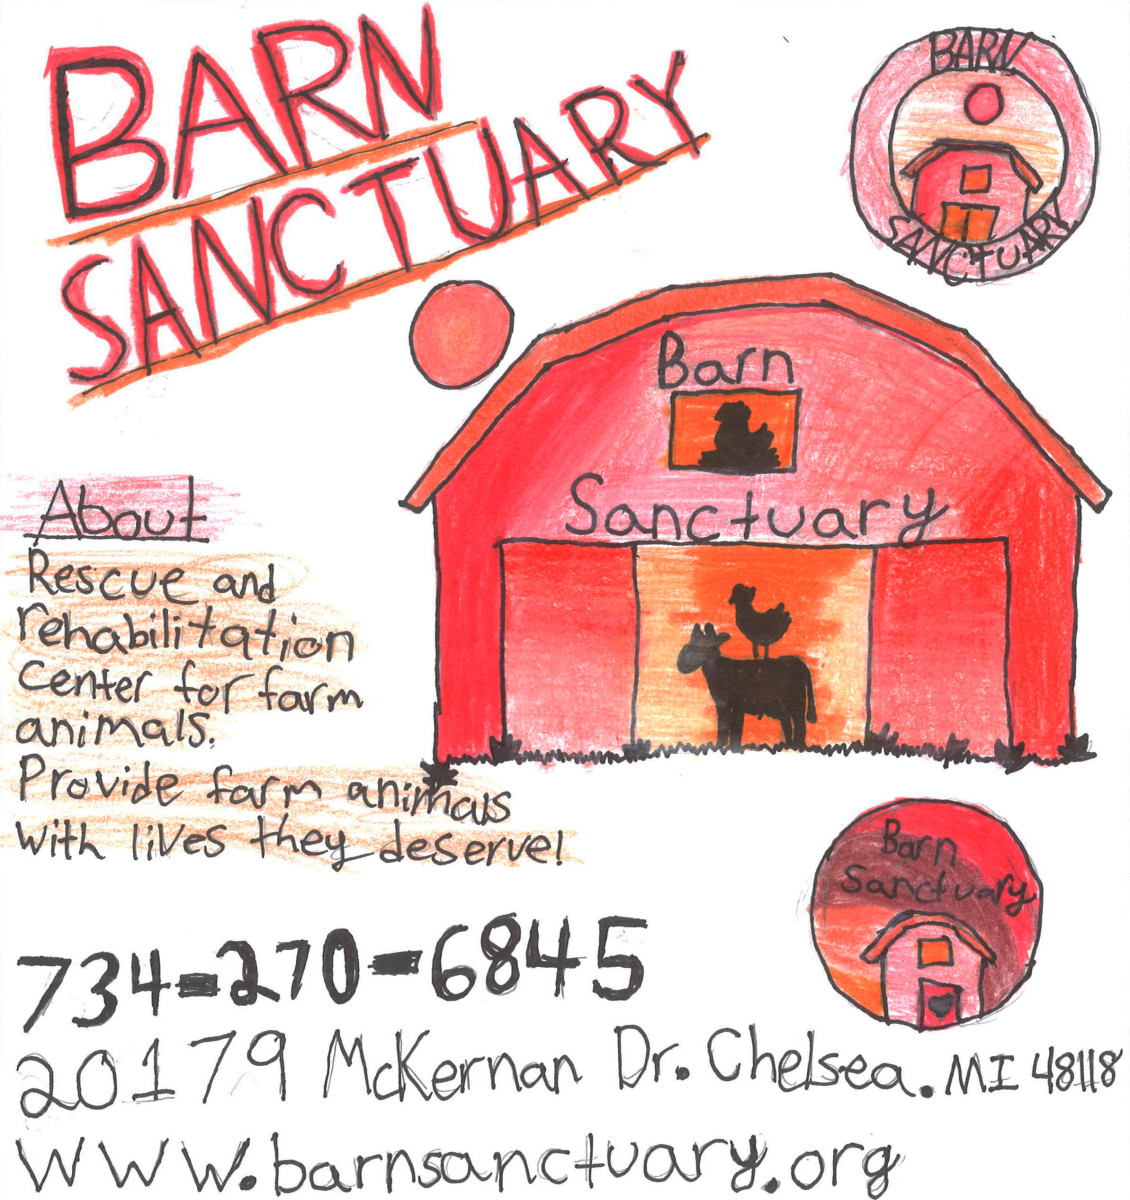 BARN
SANCTUARY
BARN
SANCTUARY
Barn
Sanctuary
About
Rescue and
rehabilitation
Center for farm
animals.
Provide farm animals
with lives they deserve!
Barn
Sanctuary
734-270-6845
20179 McKernan Dr. Chelsea. MI 48118
www.barnsanctuary.org